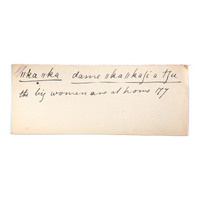 ǁka ǁka dame ǁkaǁkaʃi a tʃu
the big women are at home 187